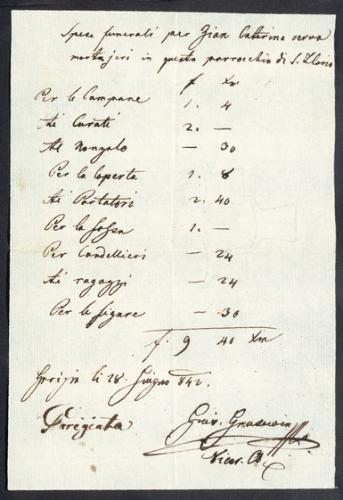 Spese funerali per Zian Caterina serva
mortajeri in questa parrocchia di S. Ilario
f Xni
Per le Campane 1. 4
Ai Curati 2. —
Al Nonzalo — 30
Per la Coperta 1. 8
Ai Portatori 2. 40
Per la fossa 1. —
Per Candellieri — 24
Ai ragazzi — 24
Per le figure — 30
f. 9 40 Xni
Gorizia li 28. Giugno 842.
Pareggiata Giov.
Vicar.